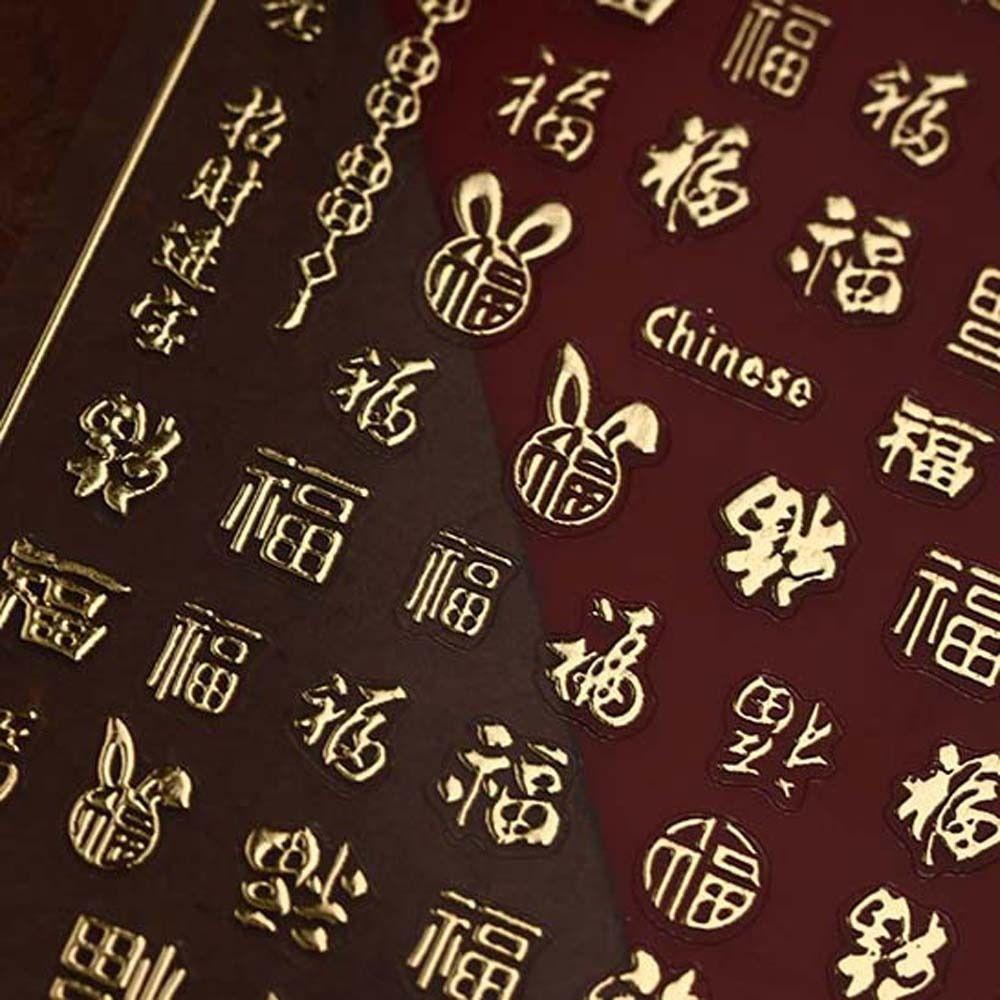 招財進宝
福
福
福
福
福
福
Chinese
福
福
福
福
福
福
福
福
福
福
福
福
福
福
福
福
福
福
福